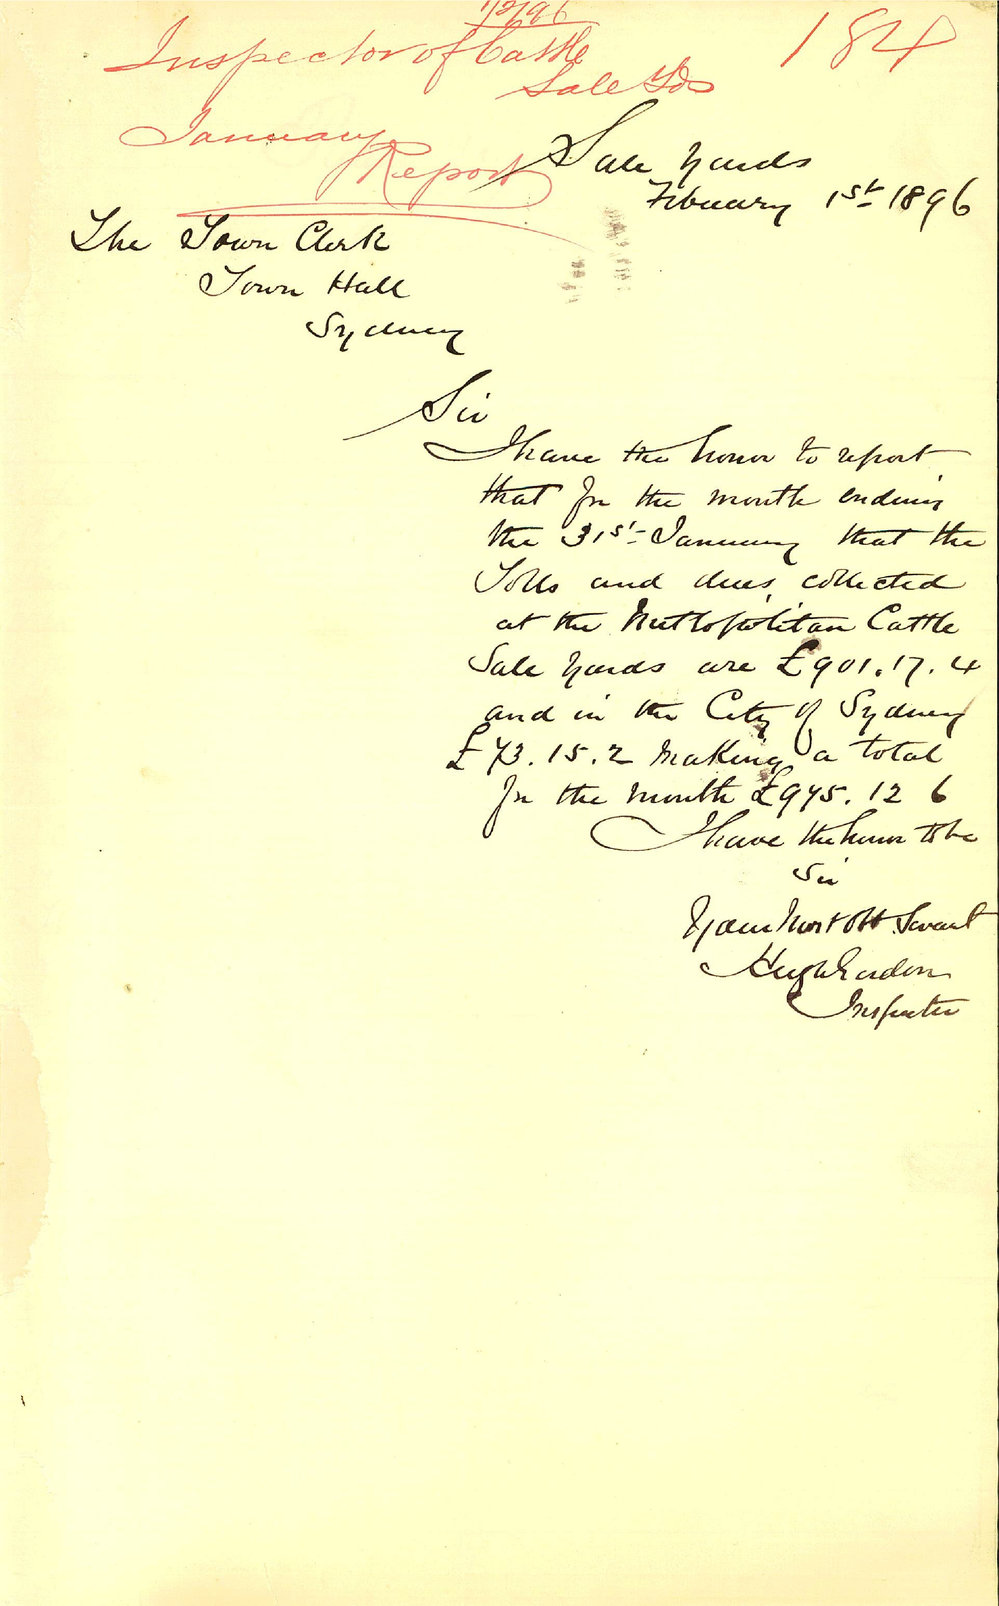 1/2/96
Inspector of Cattle
Sale Yds
184
January
Report
Sale Yards
February 1st 1896
The Town Clerk
Town Hall
Sydney
Sir
I have the honor to report
that for the month ending
the 31st January that the
Tolls and dues collected
at the Metropolitan Cattle
Sale Yards are £901.17.4
and in the City of Sydney
£73.15.2 Making a total
for the month £975.12 6
I have the honor to be
Sir
Your Most Obt Servant
Hugh Gordon
Inspector